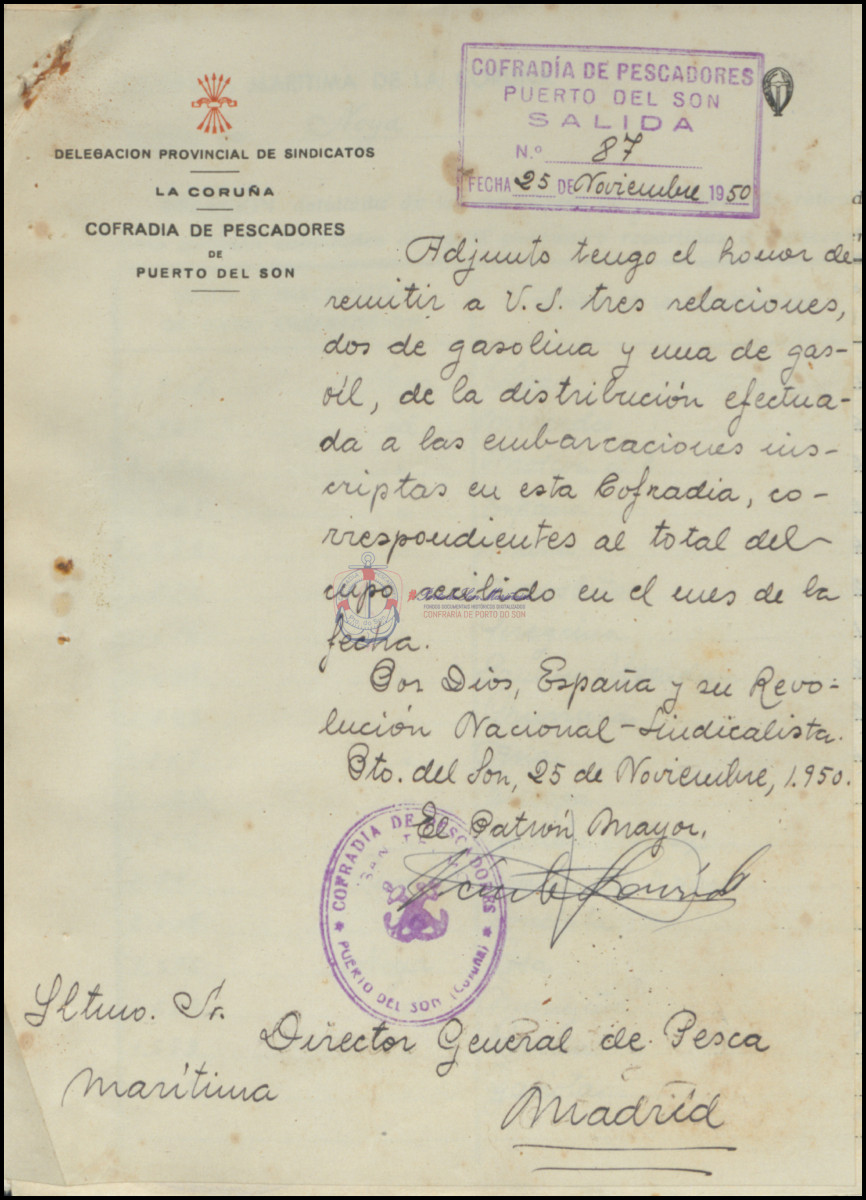 DELEGACION PROVINCIAL DE SINDICATOS
LA CORUÑA
COFRADIA DE PESCADORES
DE
PUERTO DEL SON
COFRADÍA DE PESCADORES
PUERTO DEL SON
SALIDA
N.º 87
FECHA 25 DE Noviembre 1950
Adjunto tengo el honor de
remitir a V.S. tres relaciones,
dos de gasolina y una de gas-
oíl, de la distribución efectua-
da a las embarcaciones ins-
criptas en esta Cofradia, co-
rrespondientes al total del
cupo recibido en el mes de la
fecha.
FONDOS DOCUMENTAIS HISTÓRICOS DIXITALIZADOS
CONFRARÍA DE PORTO DO SON
Por Dios, España y su Revo-
lución Nacional-Sindicalista.
Pto. del Son, 25 de Noviembre, 1.950.
El Patrón Mayor,
COFRADIA DE PESCADORES
PUERTO DEL SON (CORUÑA)
Iltmo. Sr.
Director General de Pesca
marítima
Madrid